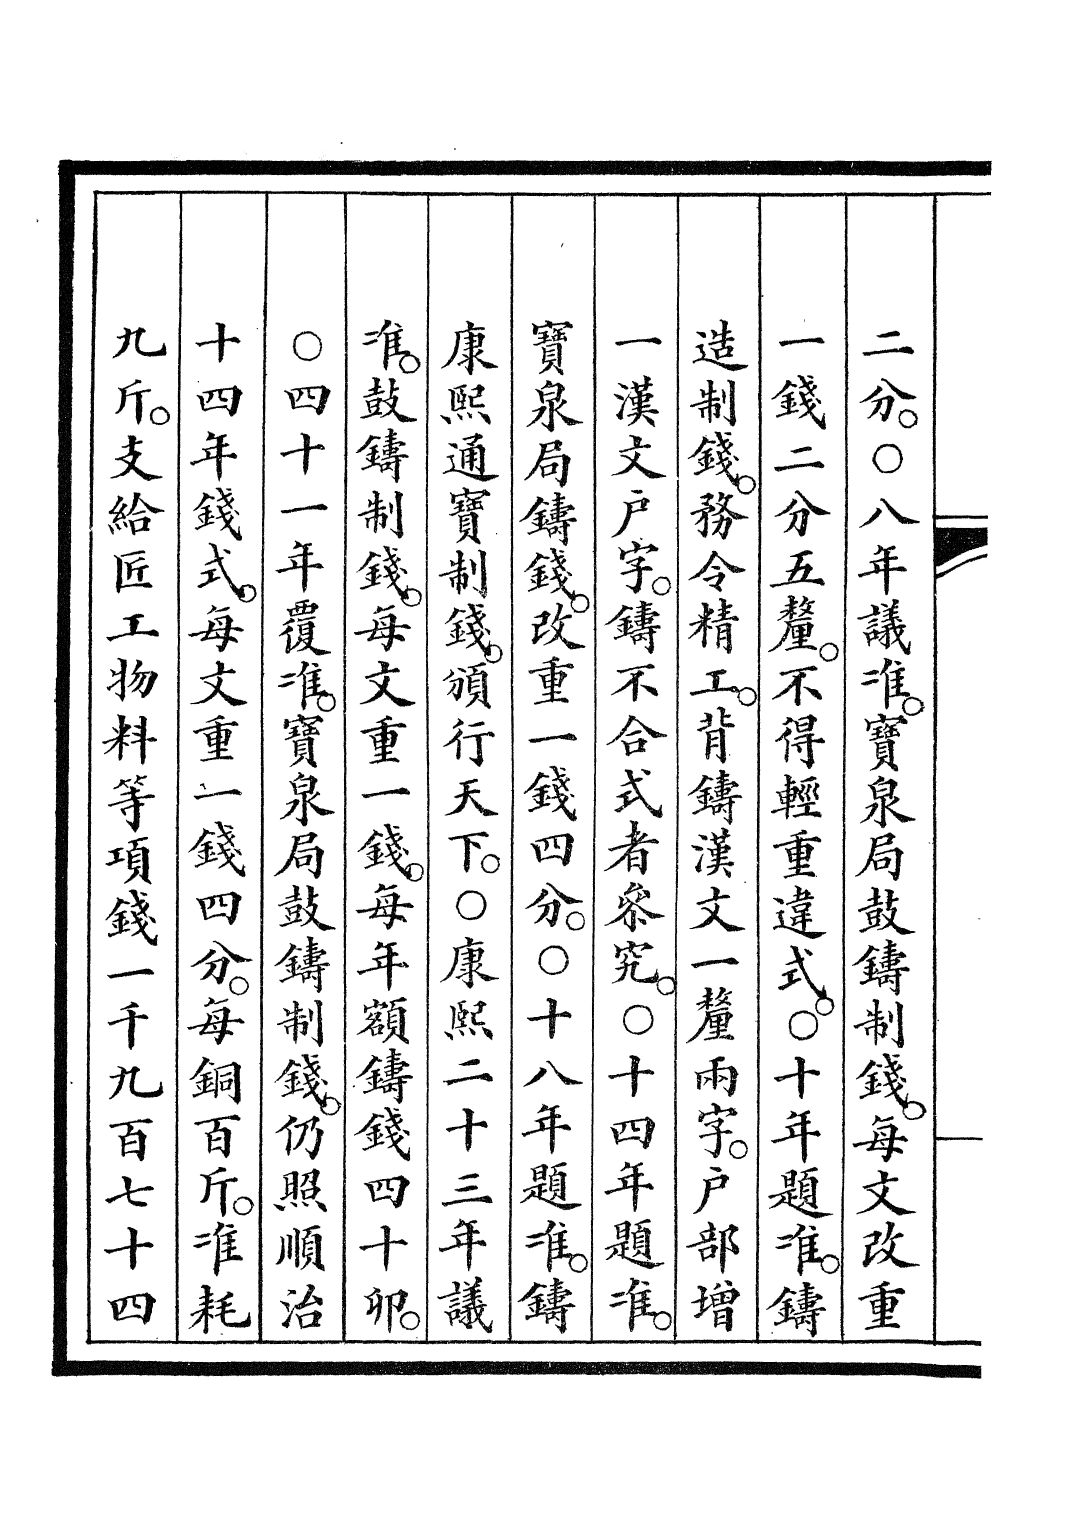 二分。○八年議准。寶泉局鼓鑄制錢。每文改重
一錢二分五釐。不得輕重違式。○十年題准。鑄
造制錢。務令精工。背鑄漢文一釐兩字。戶部增
一漢文戶字。鑄不合式者參究。○十四年題准。
寶泉局鑄錢。改重一錢四分。○十八年題准。鑄
康熙通寶制錢。頒行天下。○康熙二十三年議
准。鼓鑄制錢。每文重一錢。每年額鑄錢四十卯。
○四十一年覆准。寶泉局鼓鑄制錢。仍照順治
十四年錢式。每文重一錢四分。每銅百斤。准耗
九斤。支給匠工物料等項錢一千九百七十四